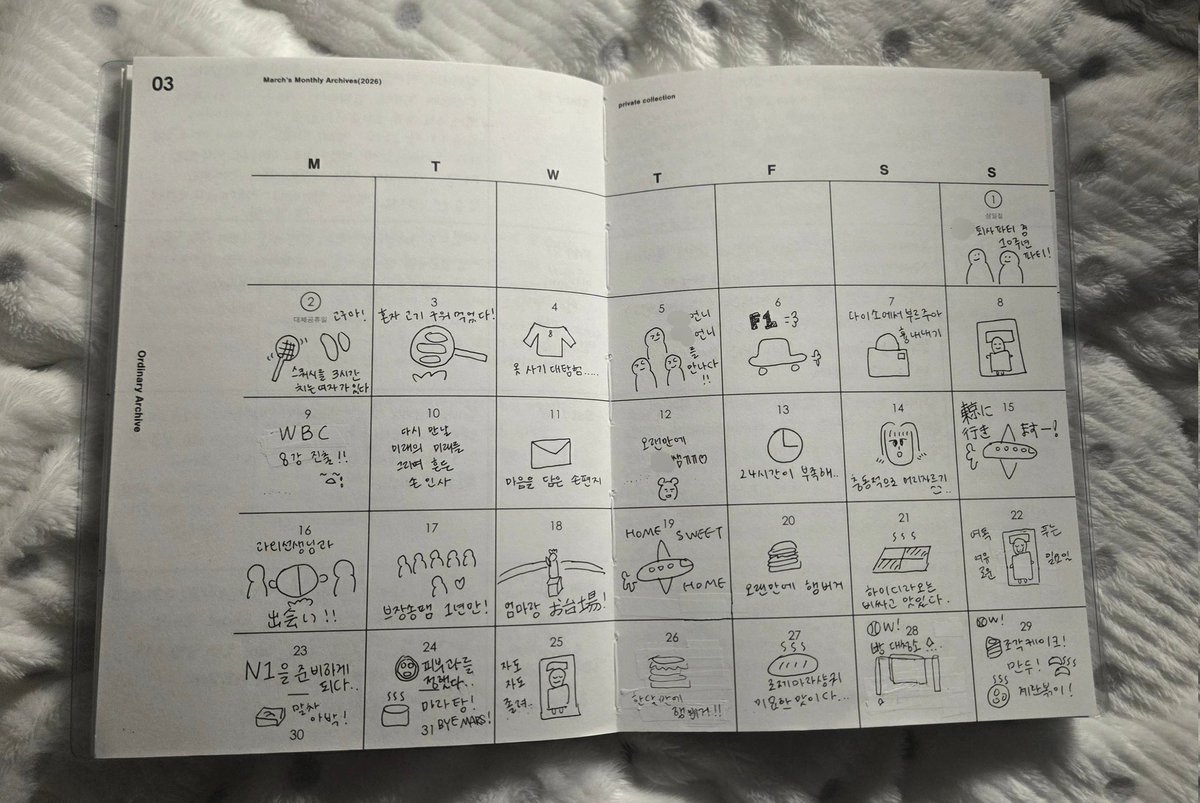 03
March's Monthly Archives(2026)
private collection
Ordinary Archive
M
T
W
T
F
S
S
1
삼일절
퇴사파티 겸
10주년
파티!
2
대체공휴일
스쿼시를 3시간
치는 여자가 있다
3
혼자 고기 구워 먹었다!
4
8
옷 사기 대탐험.....
5
언니
언니
를
만나다
!!
6
F1
7
다이소에서 부르주아
흉내내기
8
9
WBC
8강 진출!!
10
다시 만날
미래의 미래를
그리며 흔든
손 인사
11
마음을 담은 손편지
12
오랜만에
13
24시간이 부족해..
14
충동적으로 머리자르기
15
東京に
行き ますー!
16
과외선생님과
出会い!!
17
브장송팸 1년만!
18
엄마랑 お台場!
19
HOME SWEET
HOME
20
오랜만에 햄버거
21
하이디라오는
비싸고 맛있다.
22
여유
로운
일요일
23
N1을 준비하게
되다..
말차
마박!
24
피부과를
마라탕!
25
자도
자도
졸려..
26
한달만에
햄버거!!
27
로제마라상궈
미묘한 맛이다...
28
OW!
방 대청소
29
OW!
조각케이크!
만두!
계란볶이!
30
31 BYE MARS!